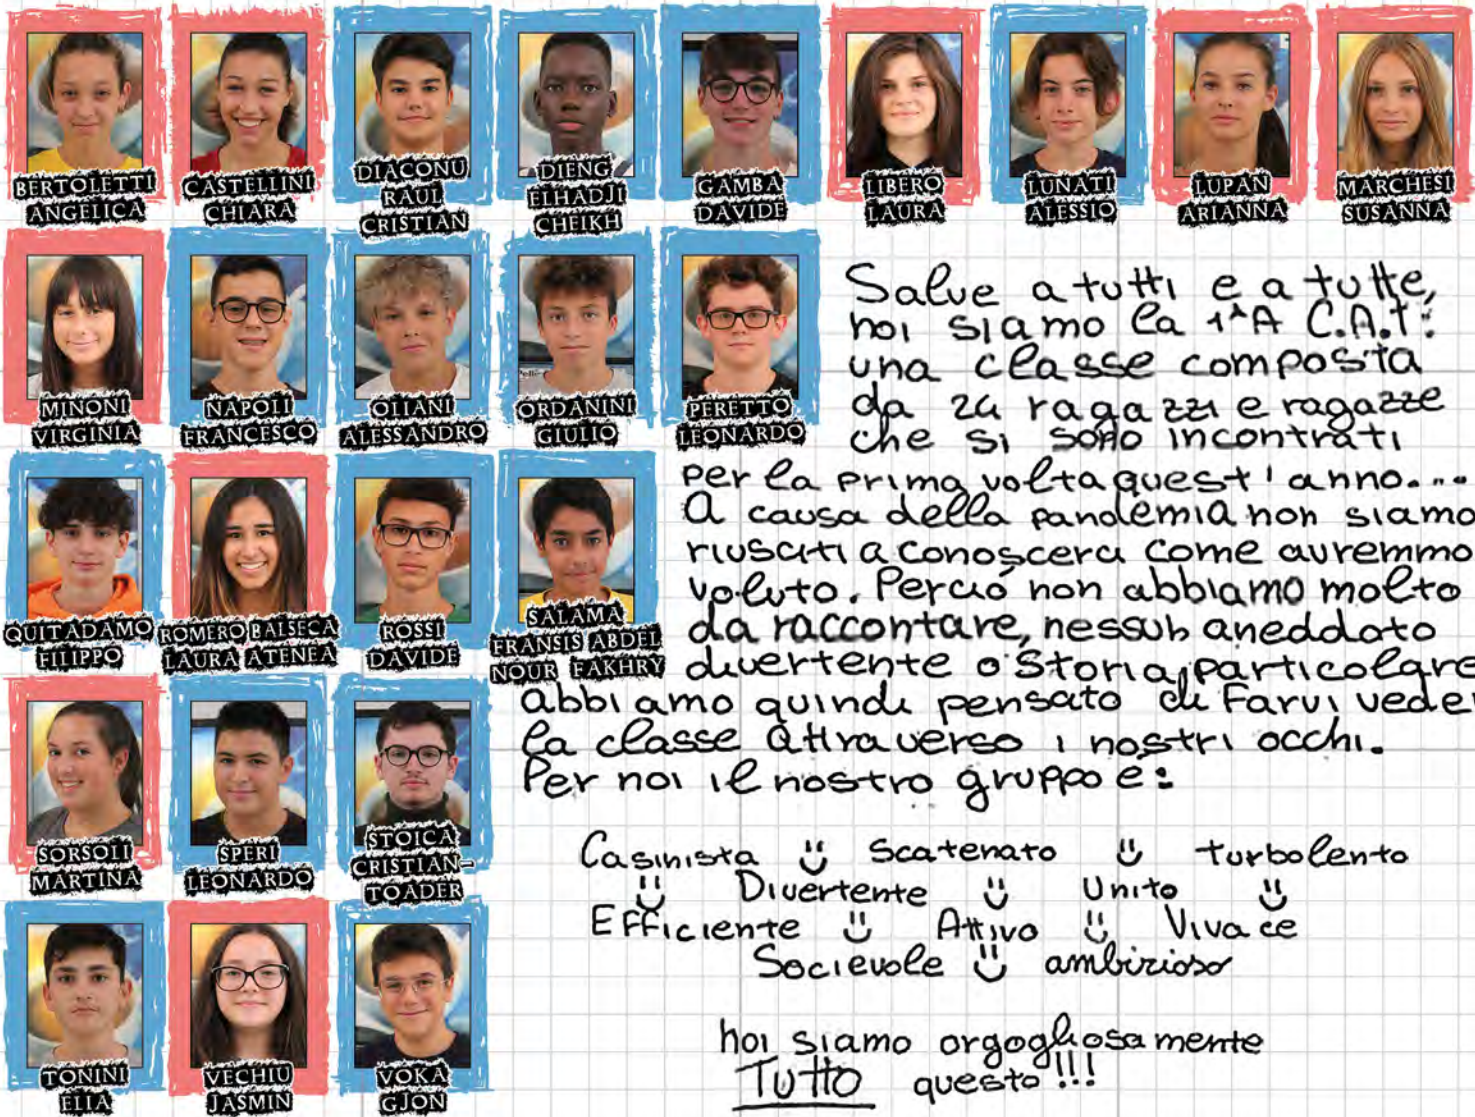 BERTOLETTI
ANGELICA
CASTELLINI
CHIARA
DIACONU
RAUL
CRISTIAN
DIENG
ELHADJI
CHEIKH
GAMBA
DAVIDE
LIBERO
LAURA
LUNATI
ALESSIO
LUPAN
ARIANNA
MARCHESI
SUSANNA
MINONI
VIRGINIA
NAPOLI
FRANCESCO
OLIANI
ALESSANDRO
ORDANINI
GIULIO
PERETTO
LEONARDO
QUITADAMO
FILIPPO
ROMERO BALSECA
LAURA ATENEA
ROSSI
DAVIDE
SALAMA
FRANSIS ABDEL
NOUR FAKHRY
SORSOLI
MARTINA
SPERI
LEONARDO
STOICA
CRISTIAN-
TOADER
TONINI
ELIA
VECHIU
JASMIN
VOKA
GJON
Salve a tutti e a tutte,
noi siamo la 1^A C.A.T:
una classe composta
da 24 ragazzi e ragazze
che si sono incontrati
per la prima volta quest'anno....
A causa della pandemia non siamo
riusciti a conoscerci come avremmo
voluto. Perciò non abbiamo molto
da raccontare, nessun aneddoto
divertente o storia particolare
abbiamo quindi pensato di farvi veder
la classe attraverso i nostri occhi.
Per noi il nostro gruppo è:
Casinista Scatenato turbolento
Divertente Unito
Efficiente Attivo Vivace
Socievole ambizioso
noi siamo orgogliosamente
Tutto questo!!!